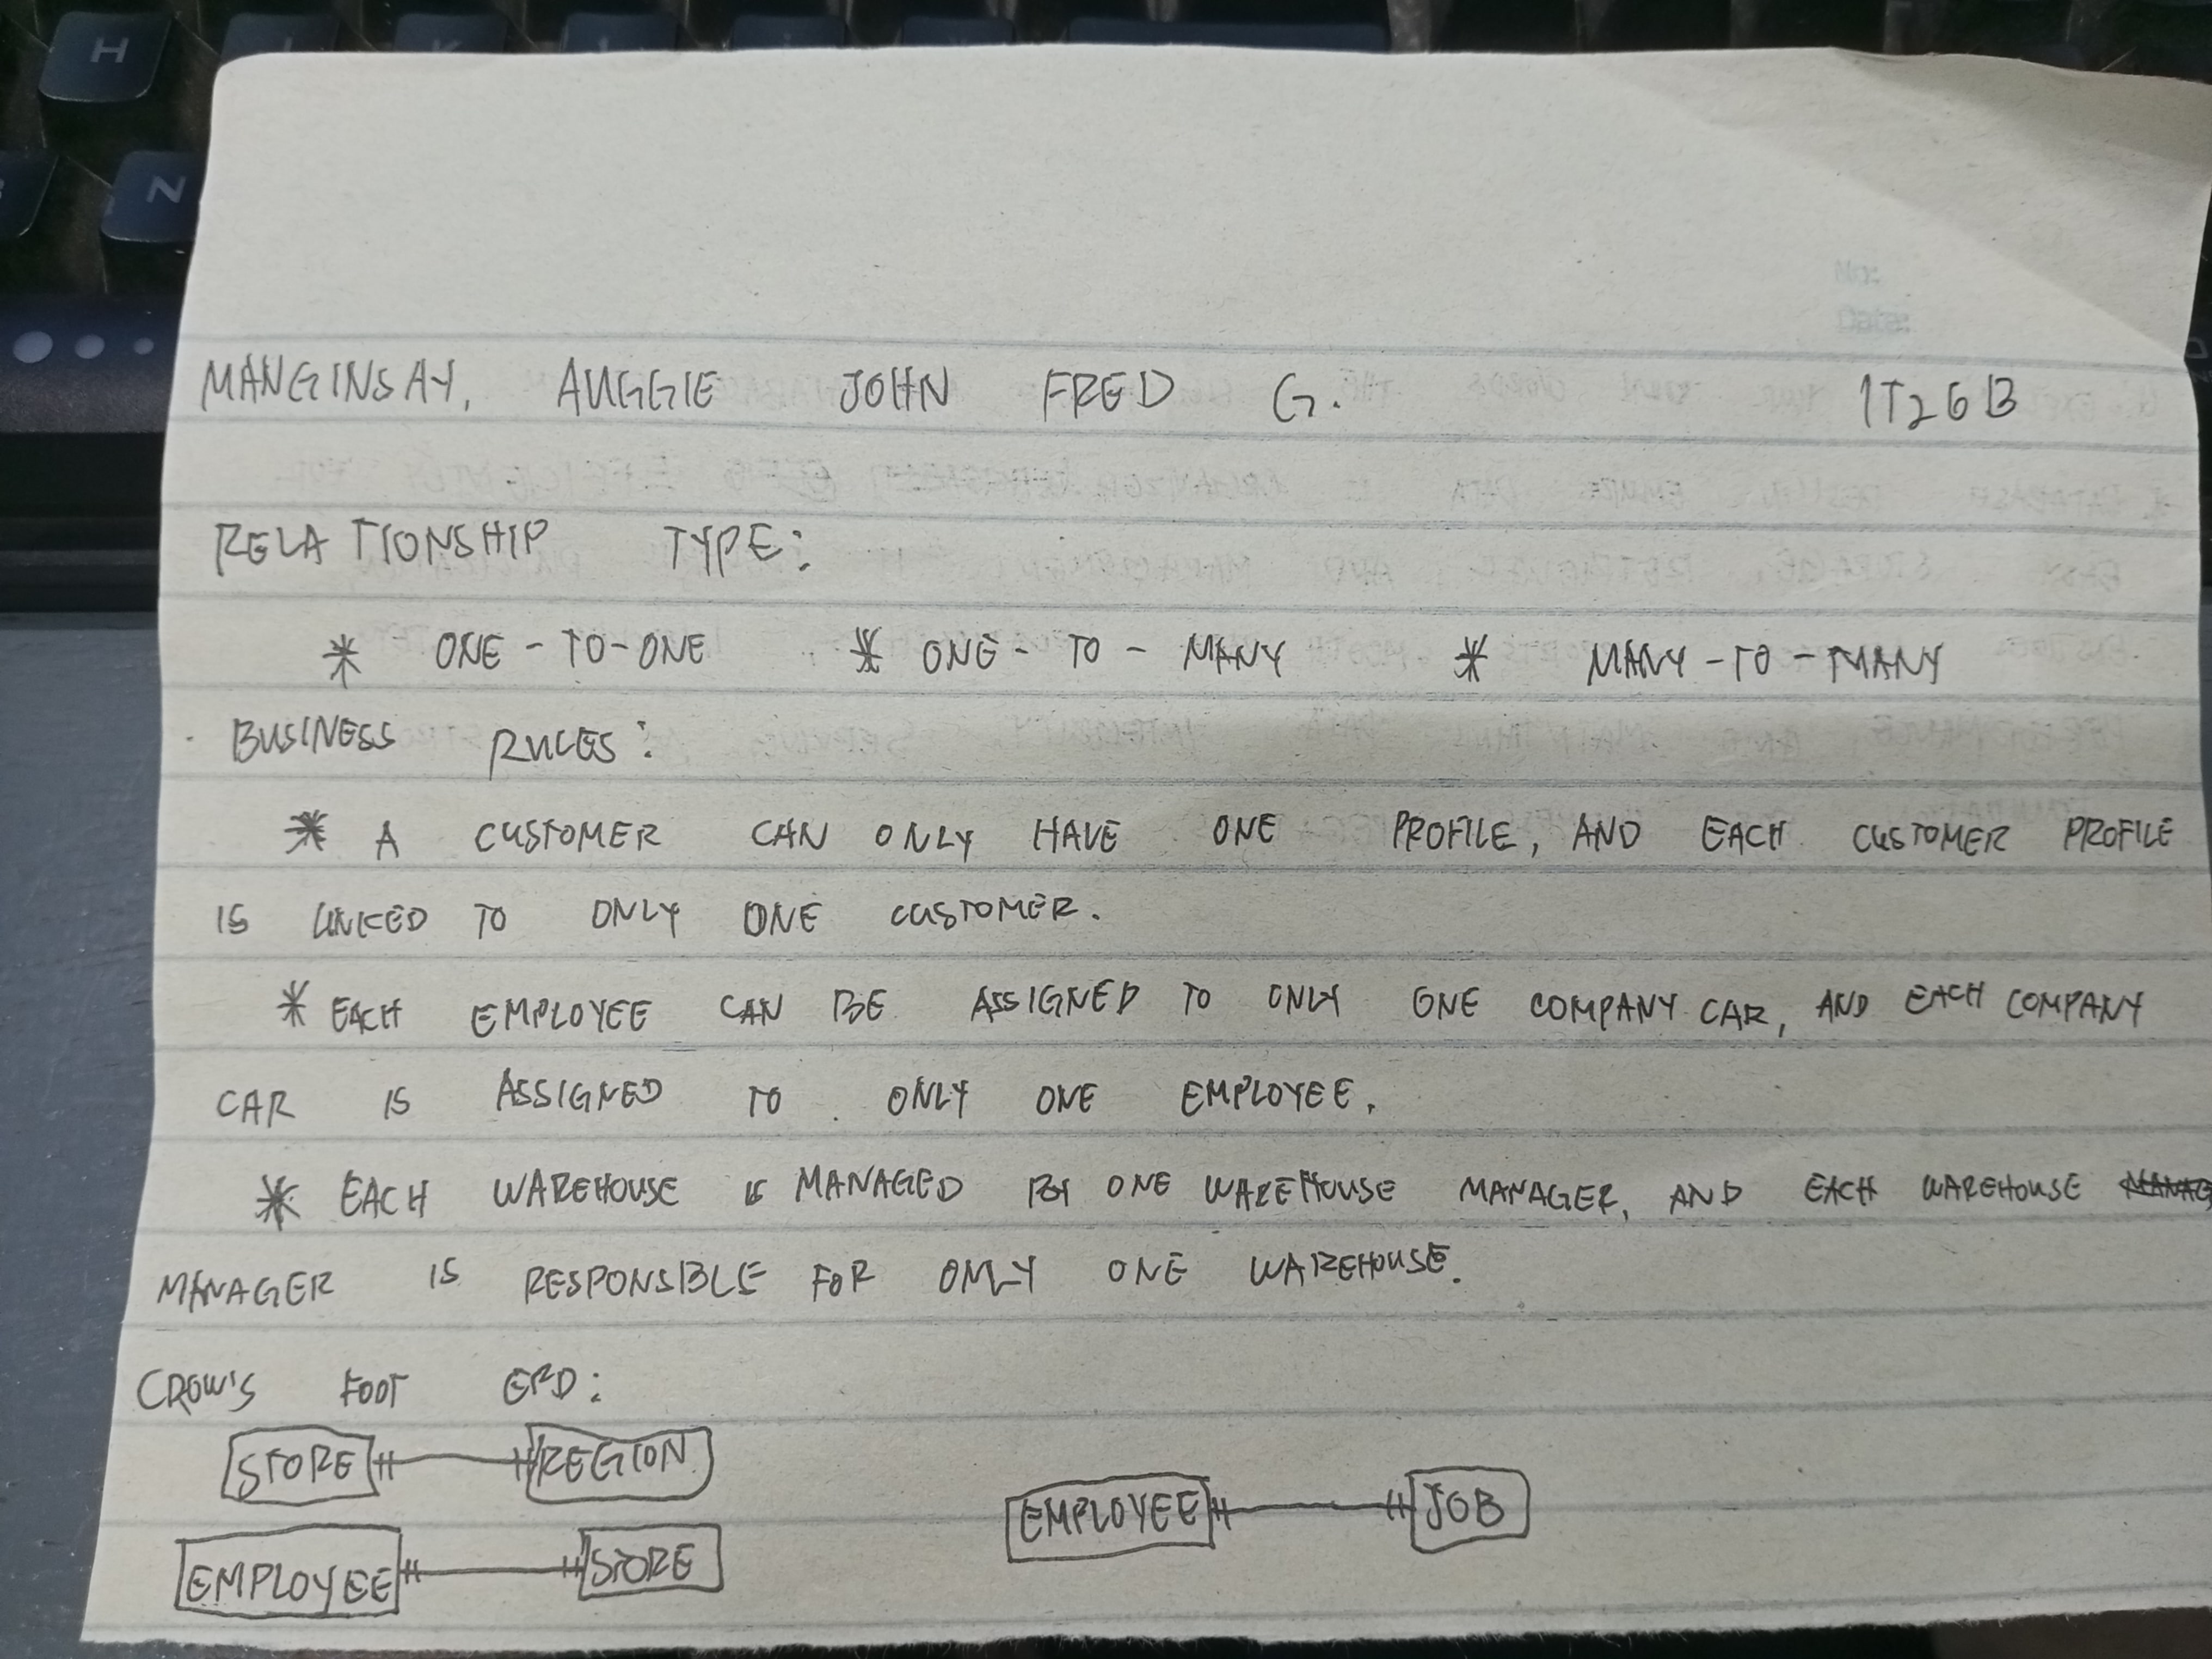 No:
Date:
MANGINSAY, AUGGIE JOHN FRED G. IT26B
RELATIONSHIP TYPE:
* ONE-TO-ONE * ONE-TO-MANY * MANY-TO-MANY
BUSINESS RULES:
* A CUSTOMER CAN ONLY HAVE ONE PROFILE, AND EACH CUSTOMER PROFILE
IS LINKED TO ONLY ONE CUSTOMER.
* EACH EMPLOYEE CAN BE ASSIGNED TO ONLY ONE COMPANY CAR, AND EACH COMPANY
CAR IS ASSIGNED TO ONLY ONE EMPLOYEE.
* EACH WAREHOUSE IS MANAGED BY ONE WAREHOUSE MANAGER, AND EACH WAREHOUSE
MANAGER IS RESPONSIBLE FOR ONLY ONE WAREHOUSE.
CROW'S FOOT ERD:
STORE REGION
EMPLOYEE JOB
EMPLOYEE STORE
H
N